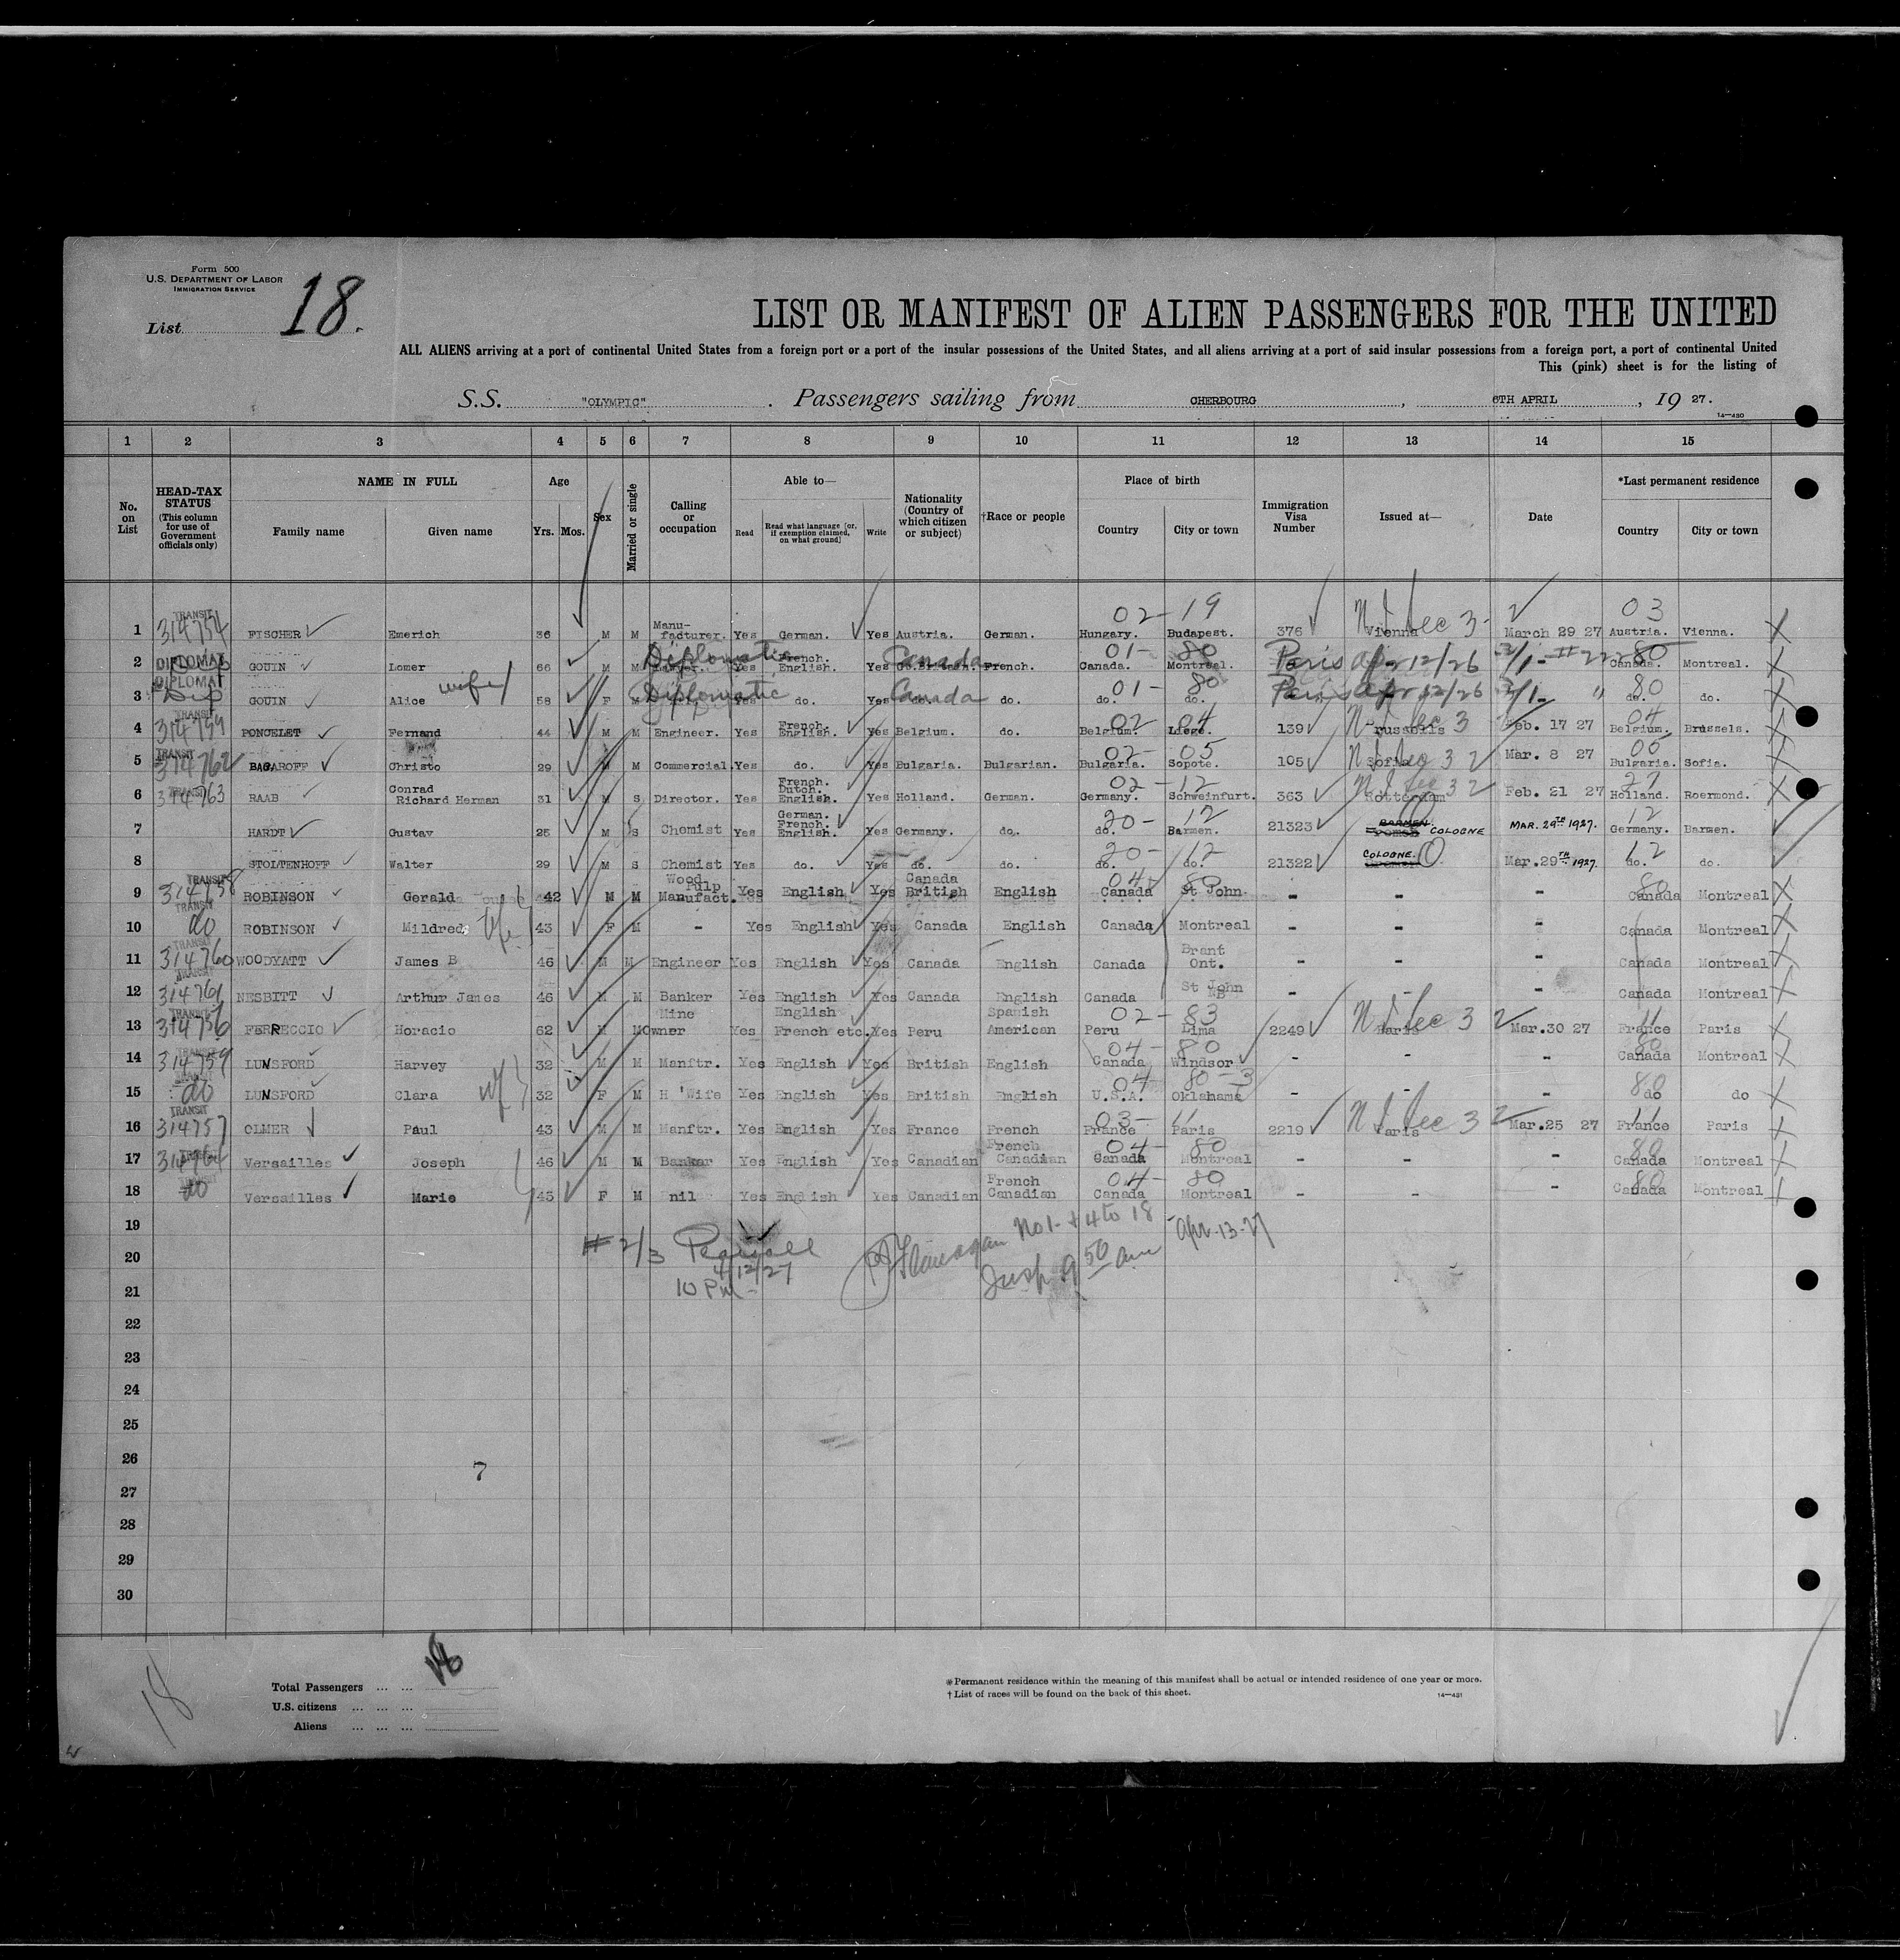 Form 500
U.S. DEPARTMENT OF LABOR
IMMIGRATION SERVICE
List 18.
LIST OR MANIFEST OF ALIEN PASSENGERS FOR THE UNITED
ALL ALIENS arriving at a port of continental United States from a foreign port or a port of the insular possessions of the United States, and all aliens arriving at a port of said insular possessions from a foreign port, a port of continental United
This (pink) sheet is for the listing of
S.S. "OLYMPIC" . Passengers sailing from CHERBOURG , 6TH APRIL , 19 27.
14—430
1 2 3 4 5 6 7 8 9 10 11 12 13 14 15
No. on List
HEAD-TAX STATUS (This column for use of Government officials only)
NAME IN FULL Family name Given name
Age Yrs. Mos.
Sex
Married or single
Calling or occupation
Able to— Read Read what language [or, if exemption claimed, on what ground] Write
Nationality (Country of which citizen or subject)
†Race or people
Place of birth Country City or town
Immigration Visa Number
Issued at—
Date
*Last permanent residence Country City or town
02 - 19 03
1 TRANSIT 314754 FISCHER Emerich 36 M M Manufacturer. Yes German. Yes Austria. German. Hungary. Budapest. 376 Vienna March 29 27 Austria. Vienna.
Diplomatic Canada 01 - 80 Paris Apr 12/26 80
2 DIPLOMAT Dip GOUIN Lomer 66 M M Lawyer. Yes French. English. Yes Gt.British. French. Canada. Montreal. Canada. Montreal.
Diplomatic Canada 01 - 80 Paris Apr 12/26 " 80
3 DIPLOMAT Dip GOUIN Alice wife 58 F M Yes do. Yes do. do. do. do. do. do.
02 04 04
4 TRANSIT PONCELET Fernand 44 M M Engineer. Yes French. English. Yes Belgium. do. Belgium. Liege. 139 Brussells Feb. 17 27 Belgium. Brussels.
02 - 05 05
5 TRANSIT 314762 BAGAROFF Christo 29 M M Commercial. Yes do. Yes Bulgaria. Bulgarian. Bulgaria. Sopote. 105 Sofia Mar. 8 27 Bulgaria. Sofia.
02 - 12 27
6 TRANSIT 314763 RAAB Conrad Richard Herman 31 M S Director. Yes French. Dutch. English. Yes Holland. German. Germany. Schweinfurt. 363 Rotterdam Feb. 21 27 Holland. Roermond.
20 - 12 12
7 HARDT Gustav 25 M S Chemist Yes German. French. English. Yes Germany. do. do. Barmen. 21323 BARMEN. COLOGNE MAR. 29TH 1927. Germany. Barmen.
20 - 12 12
8 STOLTENHOFF Walter 29 M S Chemist Yes do. Yes do. do. do. do. 21322 COLOGNE. Mar. 29TH 1927. do. do.
04 - 80 80
9 TRANSIT 314758 ROBINSON Gerald 42 M M Wood Pulp Manufact. Yes English Yes Canada British English Canada St John - - - Canada Montreal
10 TRANSIT do ROBINSON Mildred 43 F M - Yes English Yes Canada English Canada Montreal - - - Canada Montreal
11 TRANSIT 314760 WOODYATT James B 46 M M Engineer Yes English Yes Canada English Canada Brant Ont. - - - Canada Montreal
12 TRANSIT 314761 NESBITT Arthur James 46 M M Banker Yes English Yes Canada English Canada St John NB - - - Canada Montreal
02 - 83 11
13 TRANSIT 314756 FERRECCIO Horacio 62 M M Mine Owner Yes English French etc. Yes Peru Spanish American Peru Lima 2249 Paris Mar.30 27 France Paris
04 - 80 80
14 TRANSIT 314759 LUNSFORD Harvey 32 M M Manftr. Yes English Yes British English Canada Windsor - - - Canada Montreal
04 80 - 3 80
15 TRANSIT do LUNSFORD Clara wf 32 F M H 'Wife Yes English Yes British English U.S.A. Oklahama - - - do do
03 - 11 11
16 TRANSIT 314757 OLMER Paul 43 M M Manftr. Yes English Yes France French France Paris 2219 Paris Mar.25 27 France Paris
04 - 80 80
17 Versailles Joseph 46 M M Banker Yes English Yes Canadian French Canadian Canada Montreal - - - Canada Montreal
04 - 80 80
18 do Versailles Marie 45 F M nil Yes English Yes Canadian French Canadian Canada Montreal - - - Canada Montreal
19
# 2/3 4/12/27 10 PM No 1 - + 4 to 18 Apr-13-27
20
Insp 9 50 am
21
22
23
24
25
26
7
27
28
29
30
18
Total Passengers ... ... 18
U.S. citizens ... ... ...
Aliens ... ... ...
*Permanent residence within the meaning of this manifest shall be actual or intended residence of one year or more.
†List of races will be found on the back of this sheet.
14—431